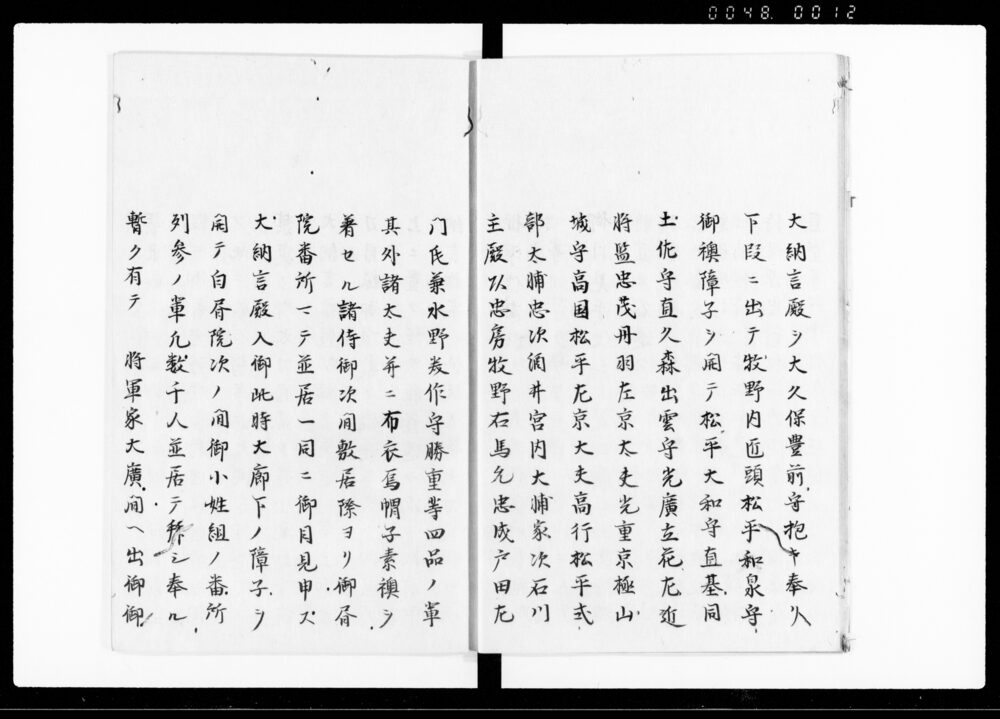 0048. 0012
大納言殿ヲ大久保豊前守抱キ奉リ
下段ニ出テ牧野内匠頭松平和泉守
御襖障子ヲ開テ松平大和守直基同
土佐守直久森出雲守光廣立花左近
将監忠茂丹羽左京大夫光重京極山
城守高国松平左京大夫高行松平式
部大輔忠次酒井宮内大輔家次石川
主殿以忠房牧野右馬允忠成戸田左
门氏兼水野美作守勝重等四品ノ軍
其外諸大夫并ニ布衣烏帽子素襖ヲ
著セル諸侍御次間敷居際ヨリ御書
院番所ニテ並居一同ニ御目見申ス
大納言殿入御此時大廊下ノ障子ヲ
開テ白書院次ノ間御小姓組ノ番所
列参ノ軍凡数千人並居テ拝シ奉ル
暫ク有テ 将軍家大廣間ヘ出御御